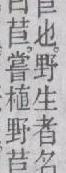 也。野生者名
苣。嘗植野苣